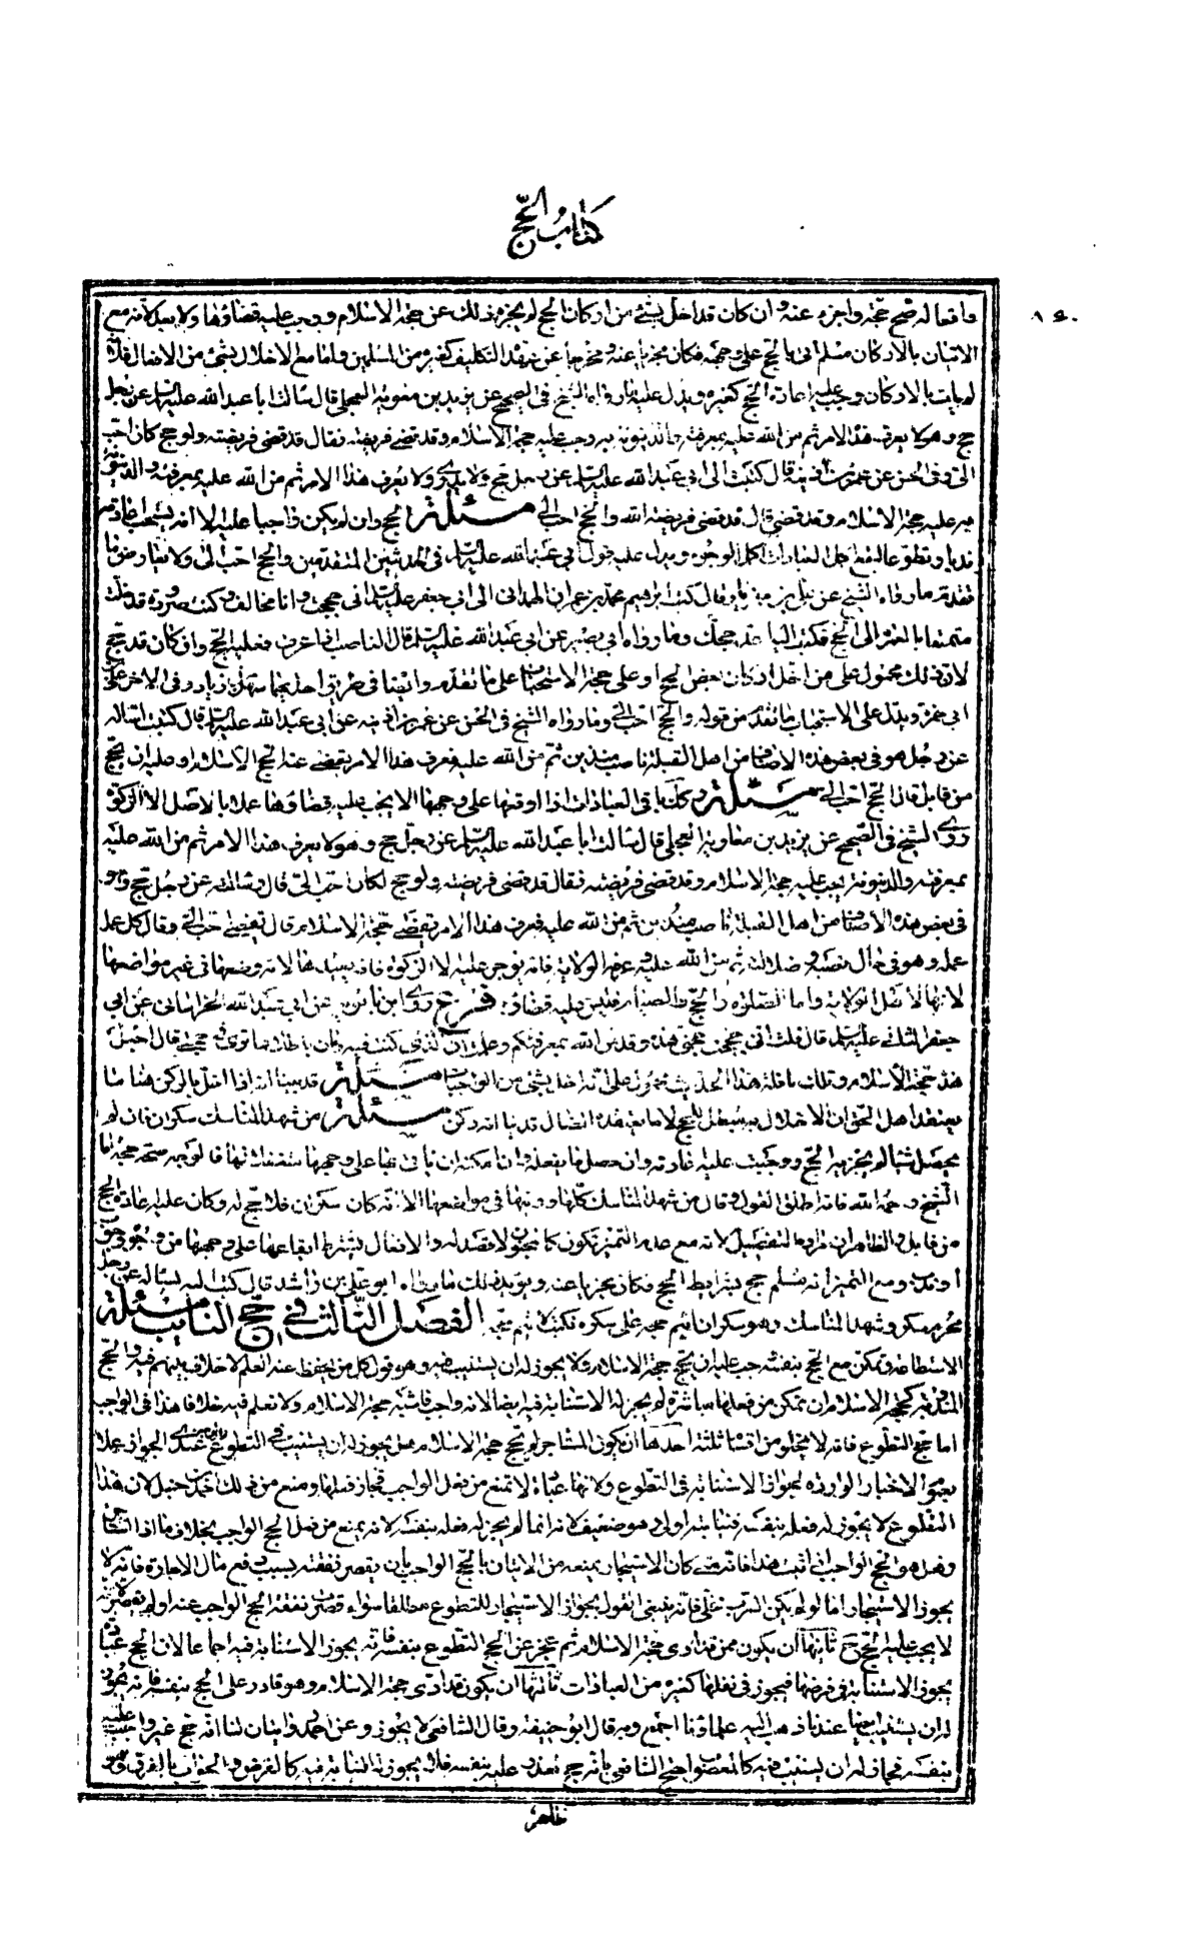 كتاب الحج
٨٦٠
وافعاله صح حجه واجزء عنه وان كان قد اخل بشئ من اركان الحج لم يجزه ذلك عن حجة الاسلام ووجب عليه قضاؤها ولا بعيد لانه مع
الاتيان بالاركان مسلم اتى بالحج على وجهه فكان مجزيا عنه ومخرجا عن عهدة التكليف كغيره من المسلمين واما مع الاخلال بشئ من الافعال فلانه
لم يات بالاركان وجب عليه اعادة الحج كغيره ويدل عليه ما رواه الشيخ فى الصحيح عن بريد بن معوية العجلى قال سالت ابا عبد الله عليه السلم عن رجل
حج وهو لا يعرف هذا الامر ثم من الله عليه بمعرفته والدينونة به وجب عليه حجة الاسلام وقد قضى فريضته فقال قد قضى فريضته ولو حج كان احب
الى وفى الحسن عن عمر بن اذينة قال كتبت الى ابى عبد الله عليه السلم عن رجل حج ولا يدرى ولا يعرف هذا الامر ثم من الله عليه بمعرفته والدينونة
به عليه حجة الاسلام وقد قضى قال قد قضى فريضة الله والحج احب الى مسئلة الحج وان لم يكن واجبا عليه الا انه يستحب اعادته
على عليه قول ابى عبد الله عليه السلم فى الحديثين المتقدمين والحج احب الى ولا يعارض
ما رواه الشيخ عن قال كتب ابرهيم بن محمد بن عمران الهمدانى الى ابى جعفر عليه السلم انى حججت وانا مخالف وكنت صرورة فدخلت
متمتعا بالعمرة الى الحج فكتب اليه اعد حجك وما رواه ابى بصير عن ابى عبد الله عليه السلم قال الناصب اذا عرف فعليه الحج وان كان قد حج
لان ذلك محمول على من اخل اركان بعض الحج او على جهة الاستحباب على ما تقدم وايضا فى طريق احدهما سهل بن زياد وفى الاخر على بن
ابى حمزة ويدل على الاستحباب ما تقدم من قوله والحج احب الى وما رواه الشيخ فى الحسن عن عمر بن اذينه عن ابى عبد الله عليه السلم قال كتبت اساله
عن رجل هو فى بعض هذه الاصناف من اهل القبلة ناصب متدين ثم من الله عليه فعرف هذا الامر يقضى عنه حج الاسلام او عليه ان يحج
من قابل قال الحج احب الى مسئلة وكذا باقى العبادات اذا اوقعها على وجهها لا يجب عليه قضاؤها عملا بالاصل الا الزكوة
روى الشيخ فى الصحيح عن بريد بن معاوية العجلى قال سالت ابا عبد الله عليه السلم عن رجل حج وهو لا يعرف هذا الامر ثم من الله عليه
بمعرفته والدينونة يجب عليه حجة الاسلام وقد قضى فريضته فقال قد قضى فريضته ولو حج لكان احب الى قال وسالته عن رجل حج وهو
فى بعض هذه الاصناف من اهل القبلة ناصب متدين ثم من الله عليه فعرف هذا الامر يقضى حجة الاسلام قال يقضى احب الى وقال كل عمل
عمله وهو فى حال نصبه وضلالته ثم من الله عليه وعرفه الولاية فانه يوجر عليه الا الزكوة فانه يعيدها لانه وضعها فى غير مواضعها
لانها لاهل الولاية واما الصلوة والحج والصيام فليس عليه قضاؤه فرع روى ابن بابويه عن ابى عبد الله الخراسانى عن ابى
جعفر الثانى عليه السلم قال قلت انى حججت حجتى هذه وقد من الله بمعرفتكم وعلمت ان الذى كنت فيه كان باطلا فما ترى فى حجتى قال اجعل
هذه حجة الاسلام وتلك نافلة هذا الحديث محمول على انه اخل بشئ من الواجبات مسئلة قد بينا انه اذا اخل بالركن هنا ما
يعتقد اهل الحق ان الاخلال به مبطل للحج لا ما يعتقده اهل الضلال قد بينا انه ركن مسئلة من شهد المناسك سكران فان لم
يحصل شيئا لم يجزيه الحج ووجبت عليه اعادته وان حصل ما يفعله وامكنه ان ياتى بها على وجهها متعقلا لها فالوجه صحة حجه اما
الشيخ رحمه الله فانه اطلق القول وقال من شهد المناسك كلها ورتبها فى مواضعها الا انه كان سكران فلا حج له وكان عليه اعادة الحج
من قابل والظاهر ان مراده التفصيل لانه مع عدم التميز يكون كالمجنون لا قصد له والافعال يشترط ايقاعها على وجهها من وجوب
او ندب ومع التميز انه مسلم حج بشرايط الحج فكان مجزيا عنه ويؤيد ذلك ما رواه ابو على بن راشد قال كتب اليه يساله عن رجل
محرم سكر وشهد المناسك وهو سكران ايتم حجه على سكره فكتب لا يتم حجه الفصل الثالث فى حج النايب مسئلة
الاستطاعة وتمكن مع الحج بنفسه وجب عليه ان يحج حجة الاسلام ولا يجوز له ان يستنيب فيه وهو قول كل من يحفظ عنه العلم لا خلاف بينهم فيه والحج
المنذور كحجة الاسلام ان تمكن من فعلها مباشرة لم يجز له الاستنابة فيه ايضا لانه واجب فاشبه حجة الاسلام ولا نعلم فيه خلافا هذا فى الواجب
اما حج التطوع فانه لا يخلو من اقسام ثلثة احدها ان يكون المستاجر لم يحج حجة الاسلام هل يجوز له ان يستنيب فى التطوع الجواز عملا
بعموم الاخبار الواردة بجواز الاستنابة فى التطوع ولانها عبادة لا تمنع من فعل الواجب فجاز فعلها ومنع من ذلك احمد بن حنبل لان هذا
التطوع لا يجوز له فعله بنفسه فنيابته اولى وهو ضعيف لانه انما لم يجز له فعله بنفسه لانه يمنع من فعل الحج الواجب بخلاف ما اذا استاجر
الحج الواجب اذا ثبت هذا فانه متى كان الاستيجار يمنعه من الاتيان بالحج الواجب بان يقصر نفقته بسبب دفع مال الاجارة فانه لا
يجوز الاستيجار اما لو لم يكن فانه ينبغى القول بجواز الاستيجار للتطوع مطلقا سواء قصرت نفقة الحج الواجب عنه او لم يقصر لانه
لا يجب عليه الحج ح ثانيها ان يكون ممن قد ادى حجة الاسلام ثم عجز عن الحج التطوع بنفسه فانه يجوز الاستنابة فيه اجماعا لان الحج عبادة
يجوز الاستنابة فى فرضها فيجوز فى نفلها كغيره من العبادات ثالثها ان يكون قد ادى حجة الاسلام وهو قادر على الحج بنفسه فانه يجوز
له ان يستنيب ايضا عندنا ذهب اليه علماؤنا اجمع وبه قال ابو حنيفة وقال الشافعى لا يجوز وعن احمد روايتان لنا انه حج غير واجب عليه
بنفسه فجاز له ان يستنيب فيه كالمعضوب احتج الشافعى بانه حج يقدر عليه بنفسه فلا يجوز له النيابة فيه كالفرض والجواب بالفرق
ظاهر